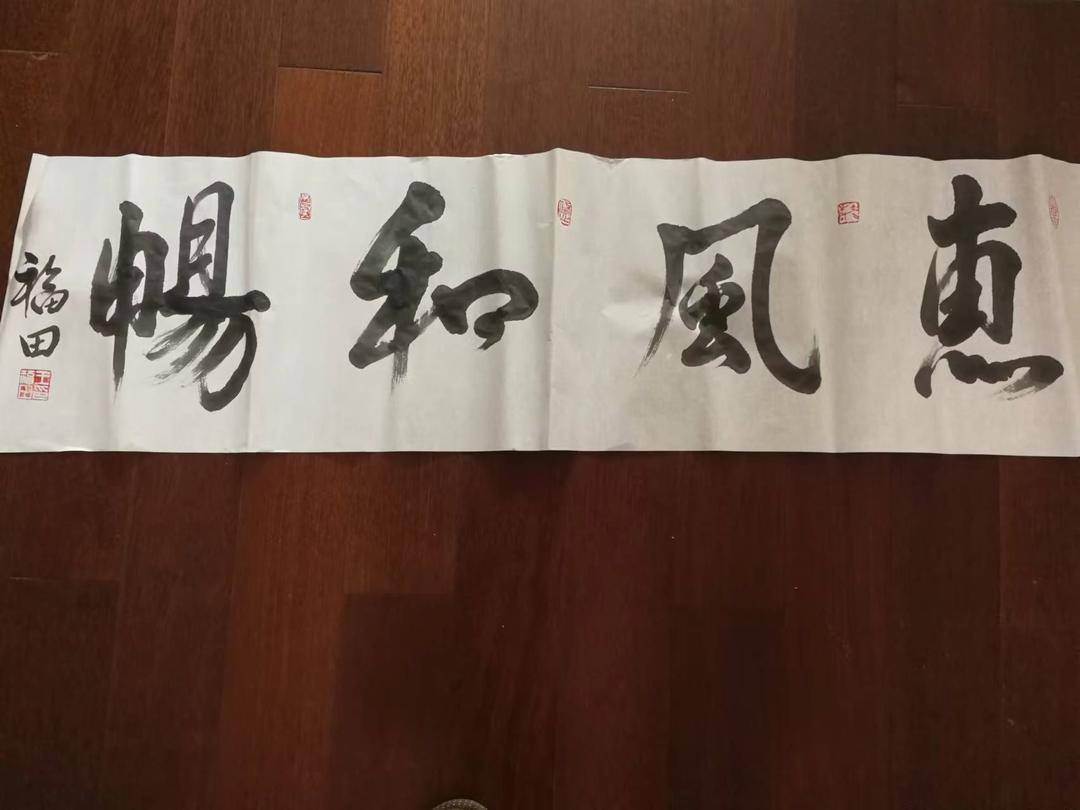 惠風和暢
福田